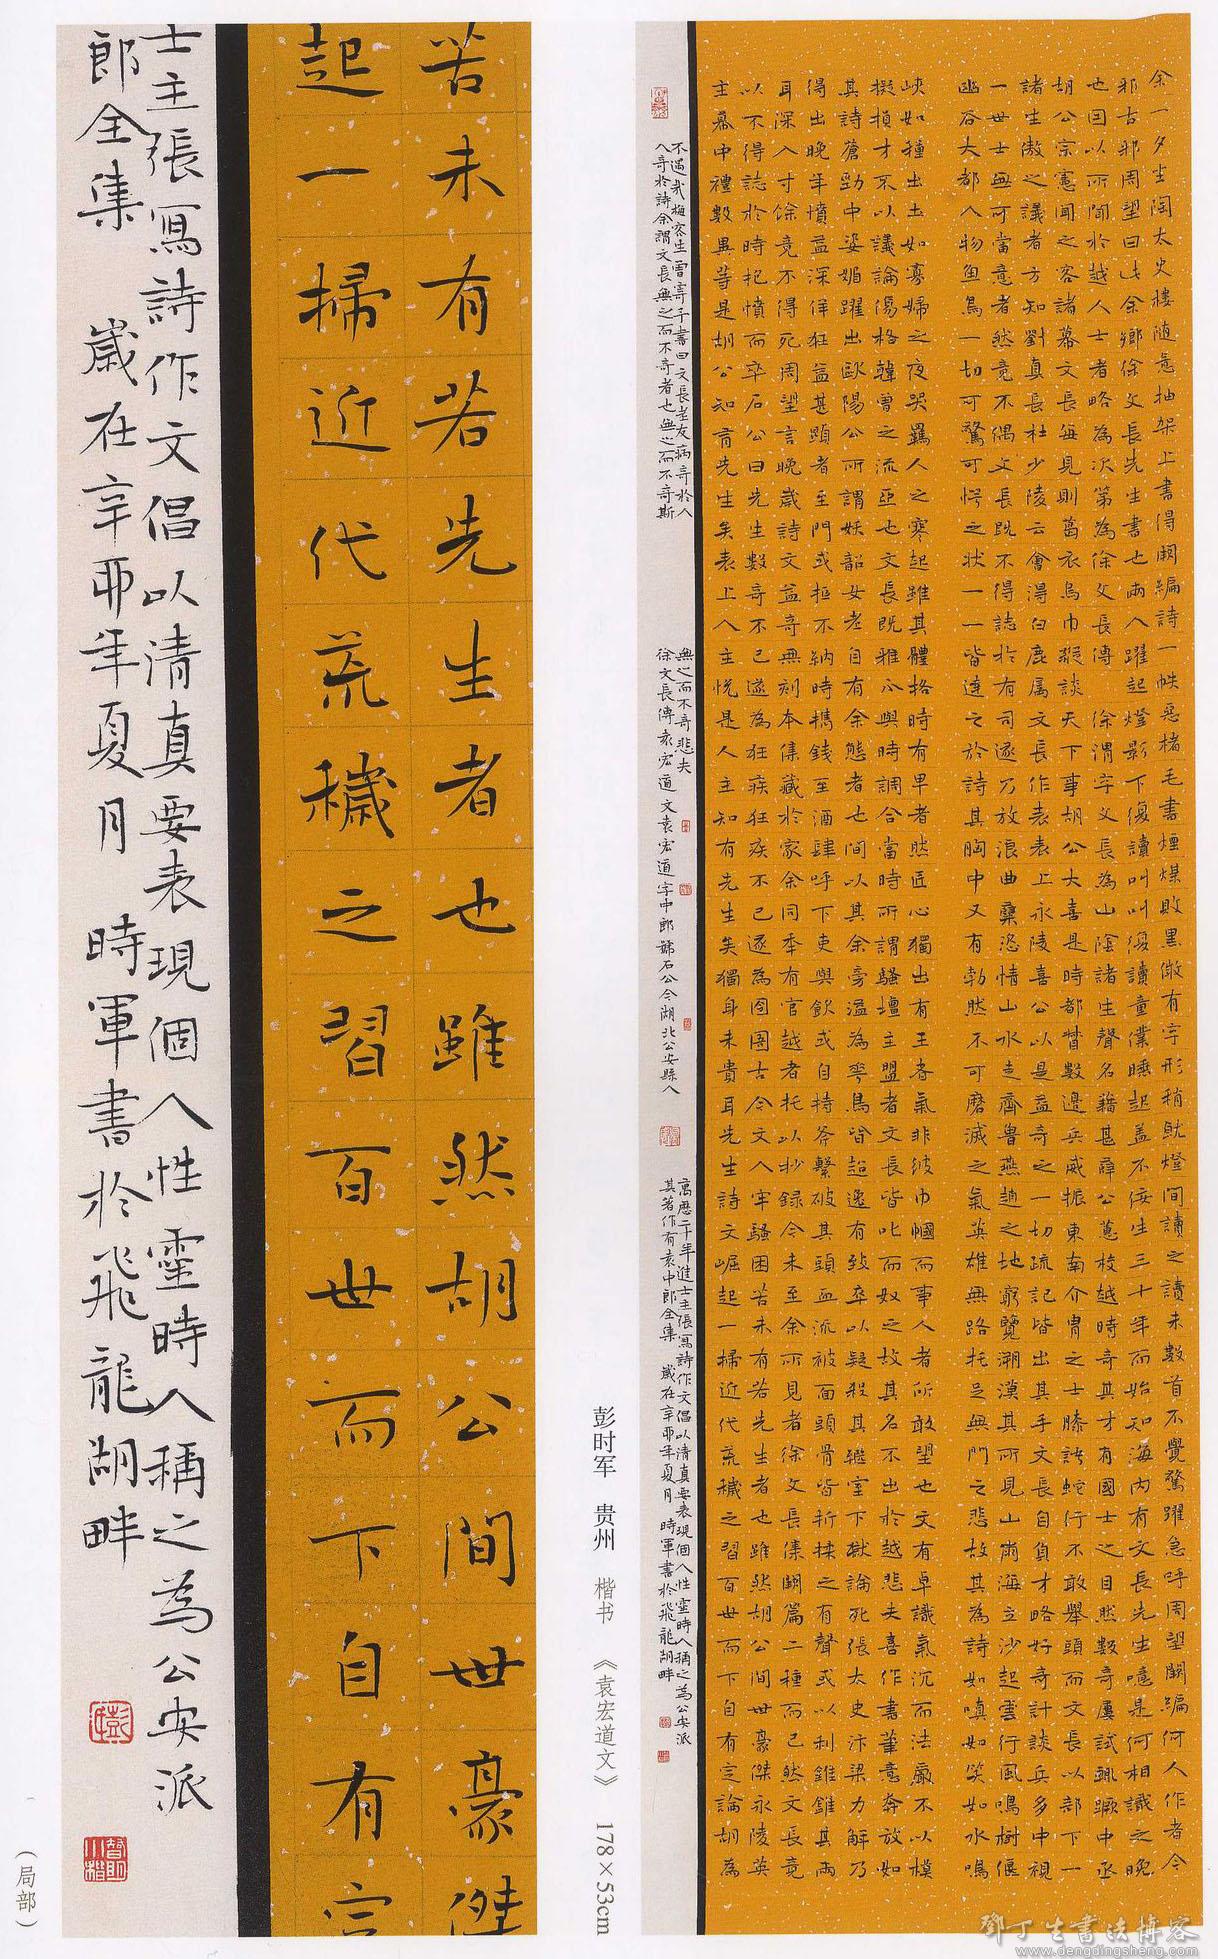 余一夕坐陶太史樓随意抽架上書得闕編詩一帙惡楮毛書煙煤敗黑微有字形稍就燈間讀之讀未數首不覺驚躍急呼周望闕編何人作者今
邪古邪周望曰此余鄉徐文長先生書也兩人躍起燈影下復讀叫叫復讀童僕睡起蓋不佞生三十年而始知海内有文長先生噫是何相識之晚
也因以所聞於越人士者略為次第為徐文長傳 徐渭字文長為山陰諸生聲名藉甚薛公蕙校越時奇其才有國士之目然數奇屢試輒蹶中丞
胡公宗憲聞之客諸幕文長每見則葛衣烏巾縱談天下事胡公大喜是時都督數邊兵威振東南介胄之士膝語蛇行不敢舉頭而文長以部下一
諸生傲之議者方知劉真長杜少陵云會得白鹿属文長作表表上永陵喜公以是益奇之一切疏記皆出其手文長自負才略好奇計談兵多中視
一世士無可當意者然竟不偶文長既不得誌於有司遂乃放浪曲蘗恣情山水走齊魯燕趙之地窮覽溯漠其所見山崩海立沙起雲行風鳴樹偃
幽谷大都人物魚鳥一切可驚可愕之状一一皆達之於詩其胸中又有勃然不可磨滅之氣英雄無路托足無門之悲故其為詩如嗔如笑如水鳴
峽如種出土如寡婦之夜哭羈人之寒起雖其體格時有卑者然匠心獨出有王者氣非彼巾幗而事人者所敢望也文有卓識氣沉而法嚴不以模
擬損才不以議論傷格韓曾之流亞也文長既雅不與時調合當時所謂騷壇主盟者文長皆叱而奴之故其名不出於越悲夫喜作書筆意奔放如
其詩蒼勁中姿媚躍出歐陽公所謂妖韶女老自有余態者也間以其余旁溢為花鳥皆超逸有致卒以疑殺其繼室下獄論死張太史汴梁力解乃
得出晚年憤益深佯狂益甚顯者至門或拒不納時攜錢至酒肆呼下吏與飲或自持斧擊破其頭血流被面頭骨皆折揉之有聲或以利錐錐其兩
耳深入寸餘竟不得死周望言晚歲詩文益奇無刻本集藏於家余同年有官越者托以抄録今未至余所見者徐文長集闕篇二種而已然文長竟
以不得誌於時抱憤而卒石公曰先生數奇不已遂為狂疾狂疾不已遂為囹圄古今文人牢騷困苦未有若先生者也雖然胡公間世豪傑永陵英
主幕中禮數異等是胡公知有先生矣表上人主悦是人主知有先生矣獨身未貴耳先生詩文崛起一掃近代荒穢之習百世而下自有定論胡為
不遇哉梅客生嘗寄予書曰文長老友病奇於人
人奇於詩余謂文長無之而不奇者也無之而不奇斯
無之而不奇悲夫
徐文長傳袁宏道文袁宏道字中郎號石公今湖北公安縣人
萬歷二十年進士主張寫詩作文倡以清真要表現個人性靈時人稱之為公安派
其著作有袁中郎全集 歲在辛卯年夏月 時軍書於飛龍湖畔
彭时军 贵州 楷书 《袁宏道文》 178×53cm
苦未有若先生者也雖然胡公間世豪傑
起一掃近代荒穢之習百世而下自有定
士主張寫詩作文倡以清真要表現個人性靈時人稱之為公安派
郎全集 歲在辛卯年夏月 時軍書於飛龍湖畔
（局部）
鄧丁生書法博客
www.dengdingsheng.com